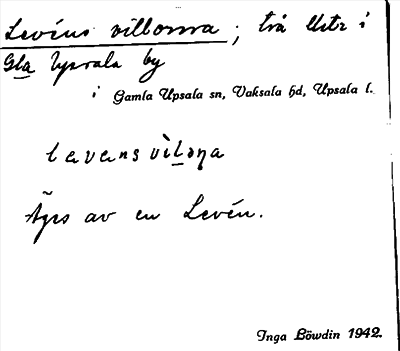 Levéns villorna; två lktr i
Gla Upsala by
i Gamla Upsala sn, Vaksala hd, Upsala l.
levens vilona
Äges av en Levén.
Inga Löwdin 1942.